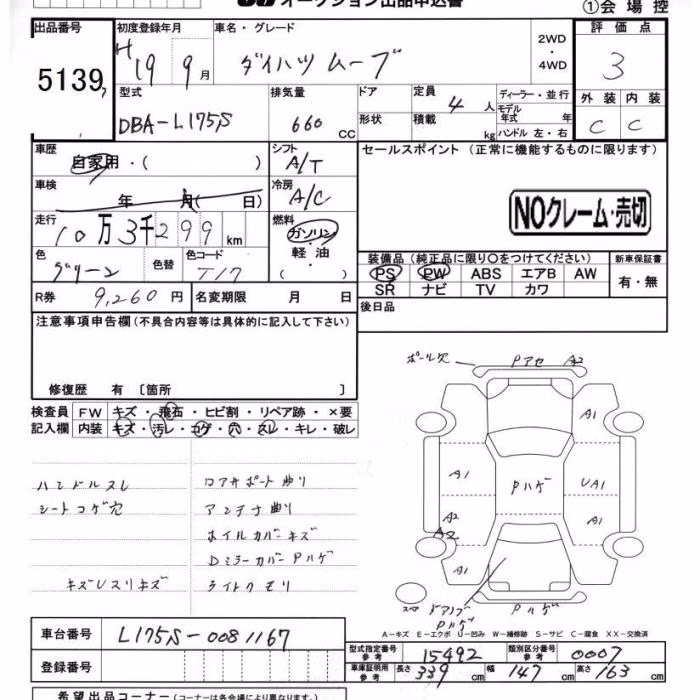 オークション出品申込書
①会場控
出品番号
5139
初度登録年月
H19 9月
車名・グレード
ダイハツ ムーブ
2WD
・
4WD
評価点
3
型式
DBA-L175S
排気量
660 CC
ドア
形状
定員
4 人
積載
kg
ディーラー・並行
モデル年式 年
ハンドル 左・右
外装 内装
C C
車歴
自家用・( )
シフト
A/T
セールスポイント (正常に機能するものに限ります)
車検
年 月( 日)
冷房
A/C
NOクレーム・売切
走行
10万3千299km
燃料
ガソリン
軽・油
( )
色
グリーン
色替
色コード
T17
装備品 (純正品に限り○をつけてください)
PS PW ABS エアB AW
SR ナビ TV カワ
新車保証書
有・無
R券 9,260円
名変期限 月 日
後日品
注意事項申告欄(不具合内容等は具体的に記入して下さい)
修復歴 有 〔箇所 〕
検査員 FW キズ・飛石・ヒビ割・リペア跡・×要
記入欄 内装 キズ・汚レ・コゲ・穴・スレ・キレ・破レ
ハンドルスレ
シートコゲ穴
キズUスリキズ
コアサポート曲り
アンテナ曲り
ホイルカバーキズ
DミラーカバーPハゲ
ライトクモリ
ポール欠
Pアセ A2
A1
A1
Pハゲ
UA1
A2
A2
A1
A1
スペア
ドアノブ
Pハゲ
Pハゲ
A-キズ E-エクボ U-凹み W-補修跡 S-サビ C-腐食 XX-交換済
車台番号 L175S-0081167
登録番号
型式指定番号 参考 15492
類別区分番号 参考 0007
車庫証明用 参考 長さ 339cm 幅 147cm 高さ 163cm
希望出品コーナー(コーナーは各会場により異なります。)